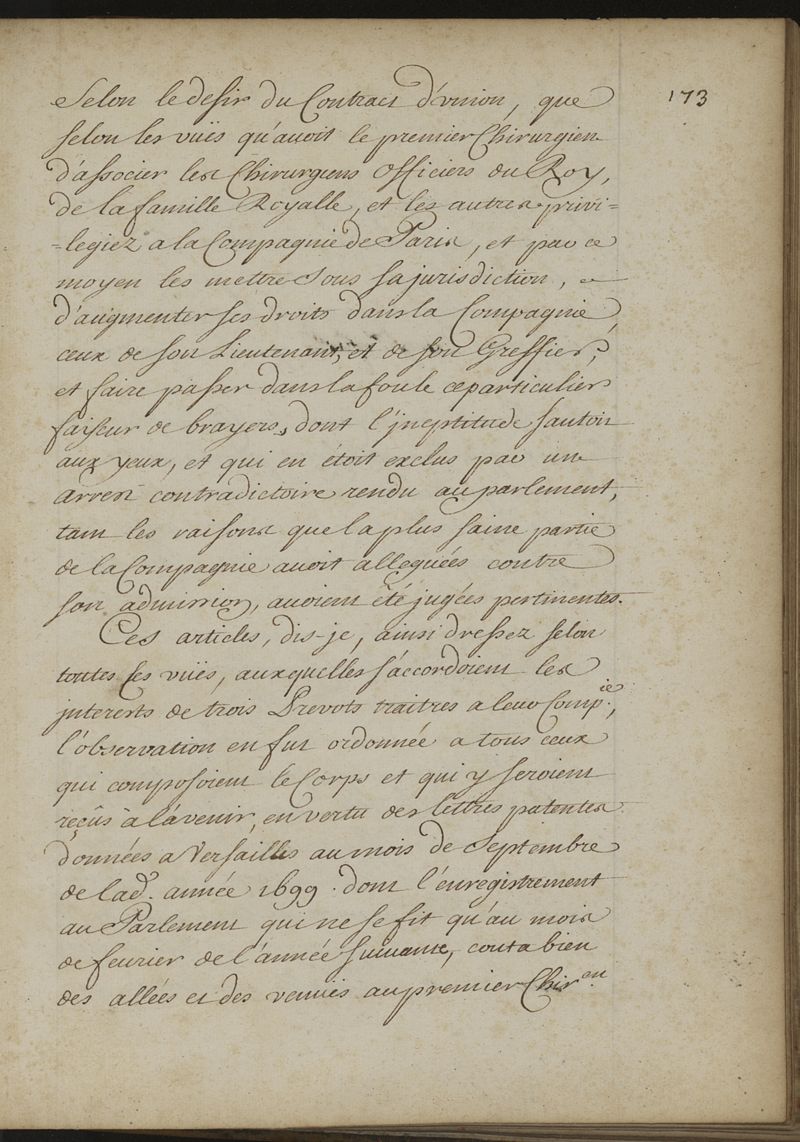 173
Selon le desir du Contract d'vnion, que
selon les vuës qu'auoit le premier Chirurgien
d'associer les Chirurgiens officiers du Roy,
de la famille Royalle, et les autres privi=
=legiez a la Compagnie de Paris, et par ce
moyen les mettre sous sa jurisdiction, et
d'augmenter ses droits dans la Compagnie,
ceux de son Lieutenant, et de son Greffier,
et faire passer dans la foule ce particulier
faiseur de brayers, dont l'jneptitude sautoit
aux yeux, et qui en étoit exclus par un
arrest contradictoire rendu au parlement,
tant les raisons que la plus saine partie
de la Compagnie auoit alleguées contre
son admission, auoient été jugées pertinentes.
Ces articles, dis-je, ainsi dressez selon
toutes ses vuës, auxquelles s'accordoient les
jnterests de trois Prevots traitres a leur Comp.ie,
l'observation en fut ordonnée a tous ceux
qui composoient le Corps et qui y seroient
reçûs à l'avenir, en vertu des lettres patentes
données a Versailles au mois de Septembre
de lad. année 1699. dont l'enregistrement
au Parlement qui ne se fit qu'au mois
de feurier de l'année suiuante, couta bien
des allées et des venuës au premier Chir.en